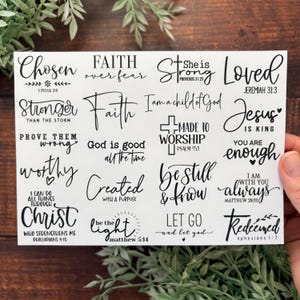 Chosen
1 PETER 2:9
FAITH
over fear
She is
Strong
PROVERBS 31:25
Loved
JEREMIAH 31:3
Stronger
THAN THE STORM
Faith
I am a child of God
Jesus
IS KING
PROVE THEM
wrong
God is good
all the time
MADE TO
WORSHIP
PSALM 95:1
YOU ARE
enough
worthy
Created
WITH A PURPOSE
be still
& know
I AM
WITH YOU
always
MATTHEW 28:20
I CAN DO
ALL THINGS
THROUGH
Christ
WHO STRENGTHENS ME
PHILIPPIANS 4:13
be the
light
matthew 5:14
LET GO
and let god
Redeemed
ephesians 1:7